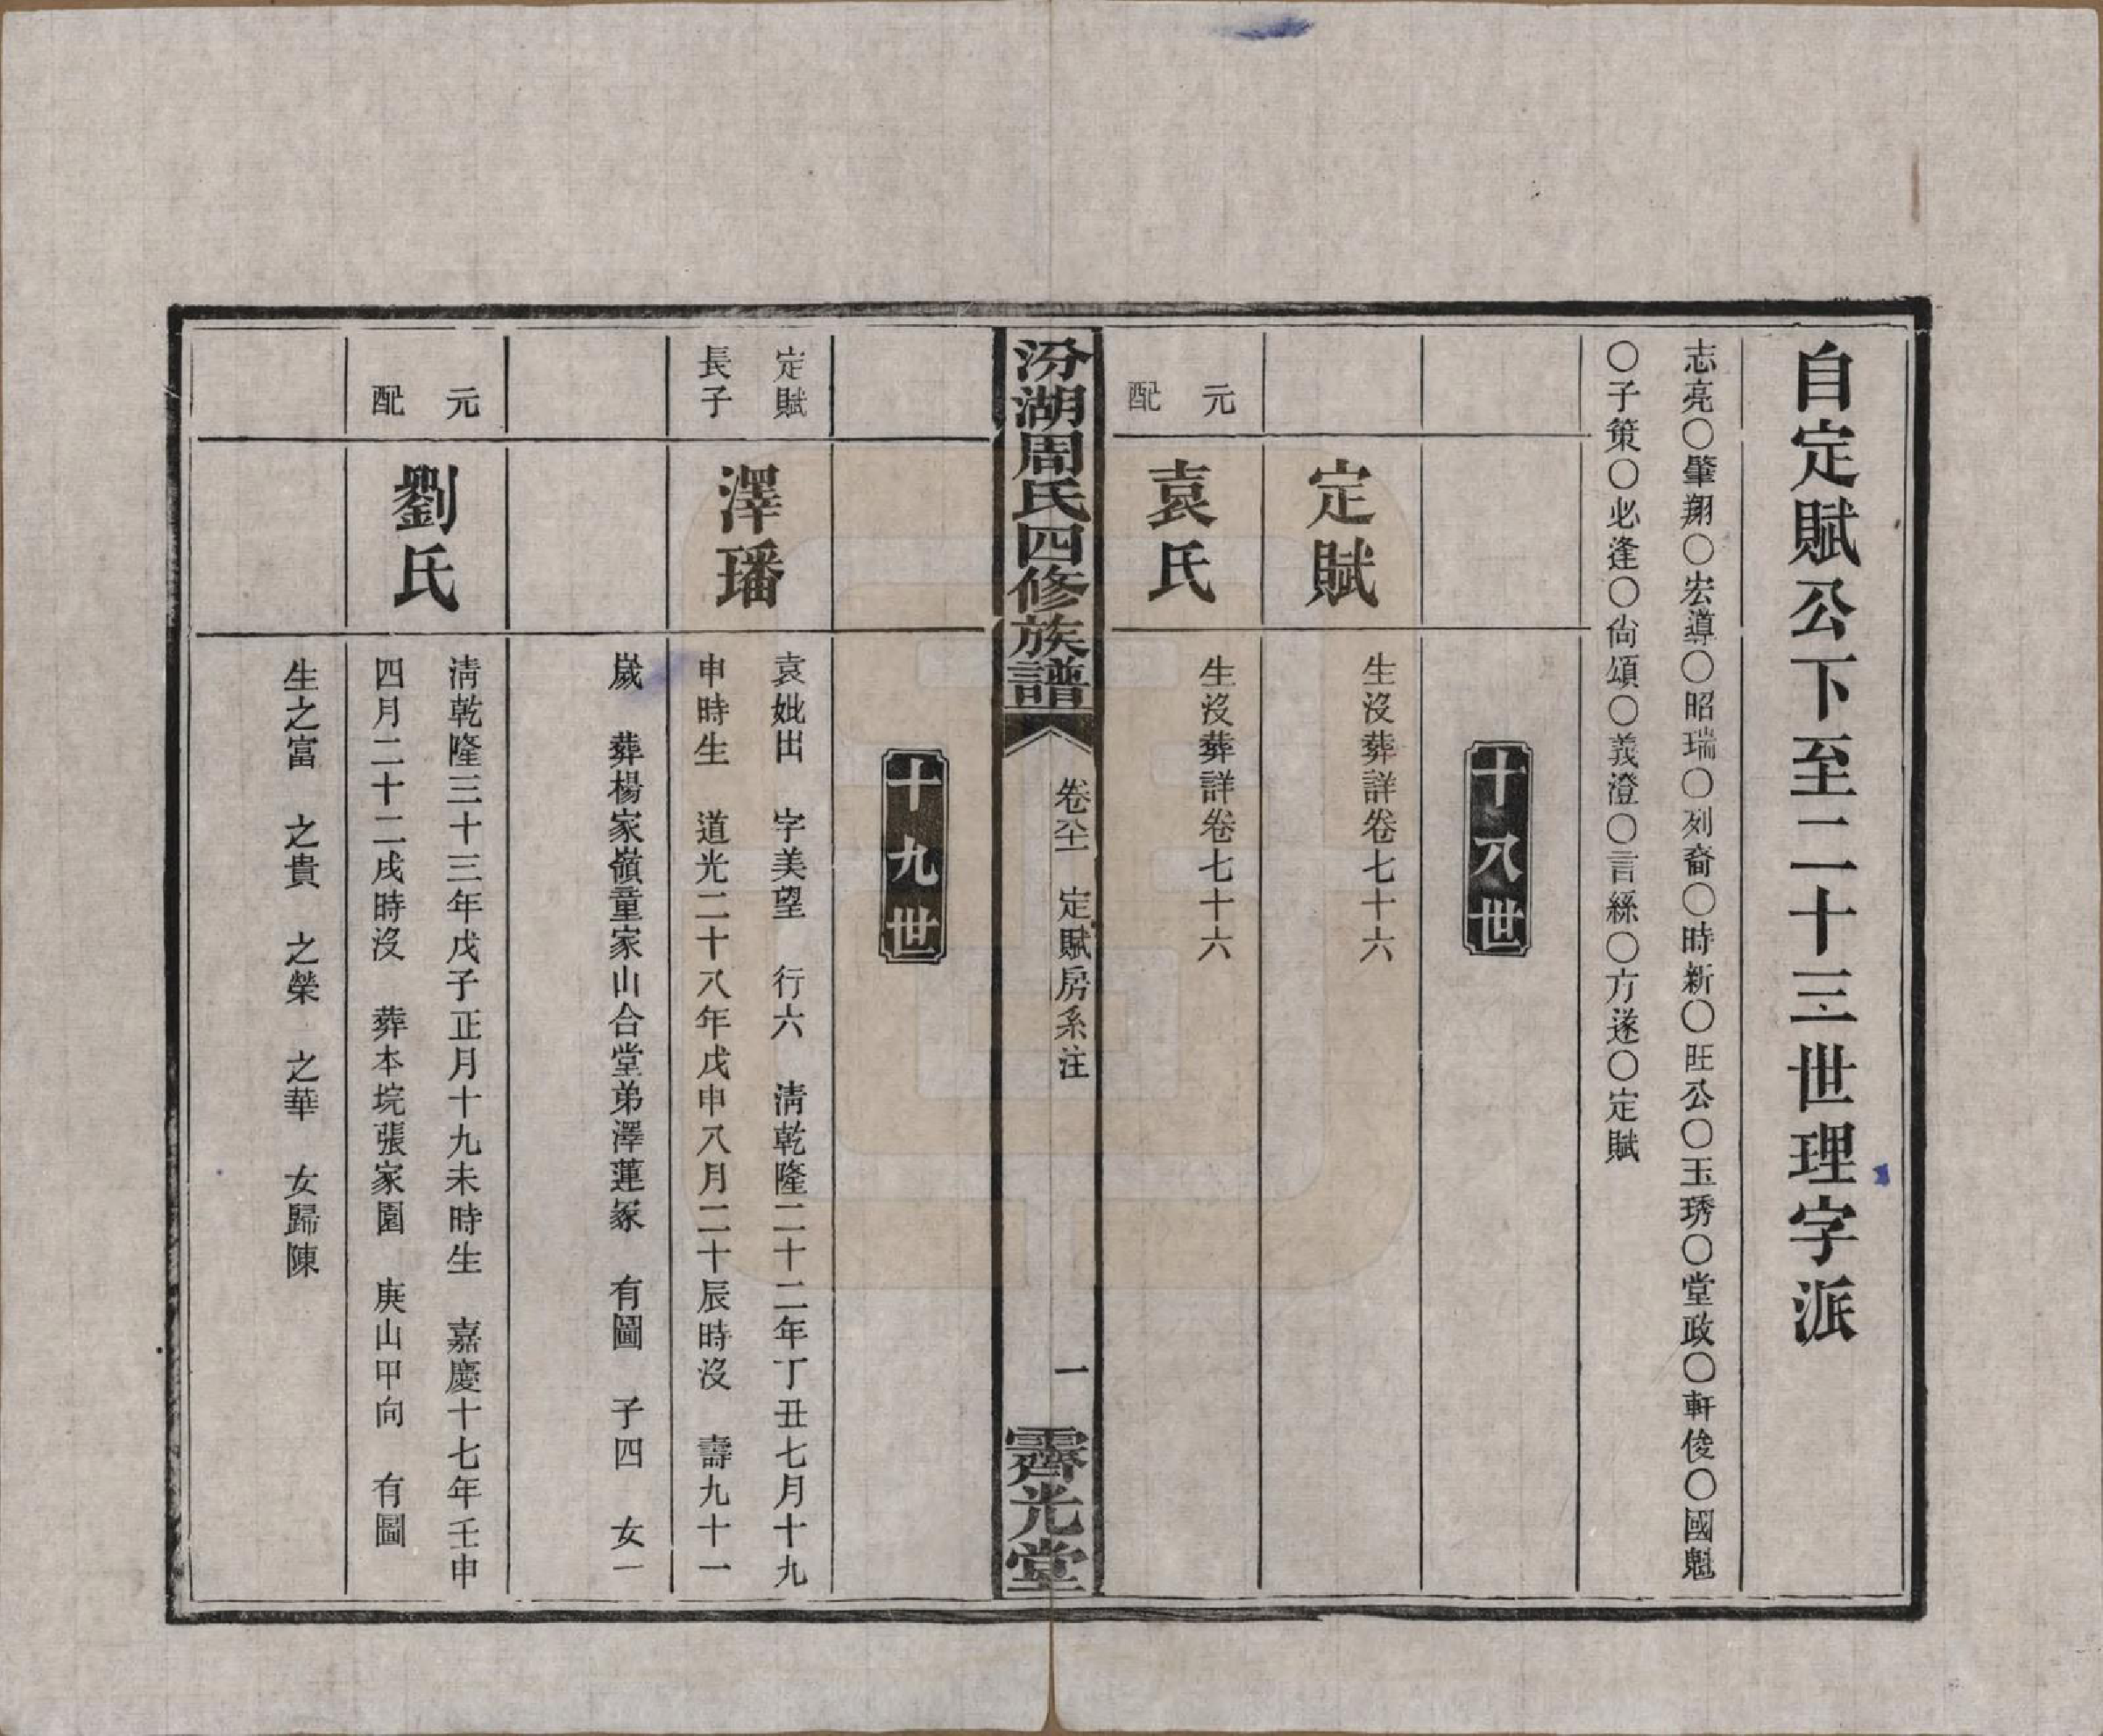 自定賦公下至二十三世理字派
志亮〇肇翔〇宏導〇昭瑞〇列裔〇時新〇旺公〇玉琇〇堂政〇軒俊〇國魁
〇子策〇必逢〇尙頌〇義澄〇言絲〇方遂〇定賦
十八世
定賦
生沒葬詳卷七十六
元配
袁氏
生沒葬詳卷七十六
汾湖周氏四修族譜
定賦房系注
一
霽光堂
十九世
定賦
長子
澤璠
袁妣出 字美望 行六 淸乾隆二十二年丁丑七月十九
申時生 道光二十八年戊申八月二十辰時沒 壽九十一
歲 葬楊家嶺童家山合堂弟澤蓮冢 有圖 子四 女一
元配
劉氏
淸乾隆三十三年戊子正月十九未時生 嘉慶十七年壬申
四月二十二戌時沒 葬本垸張家園 庚山甲向 有圖
生之富 之貴 之榮 之華 女歸陳